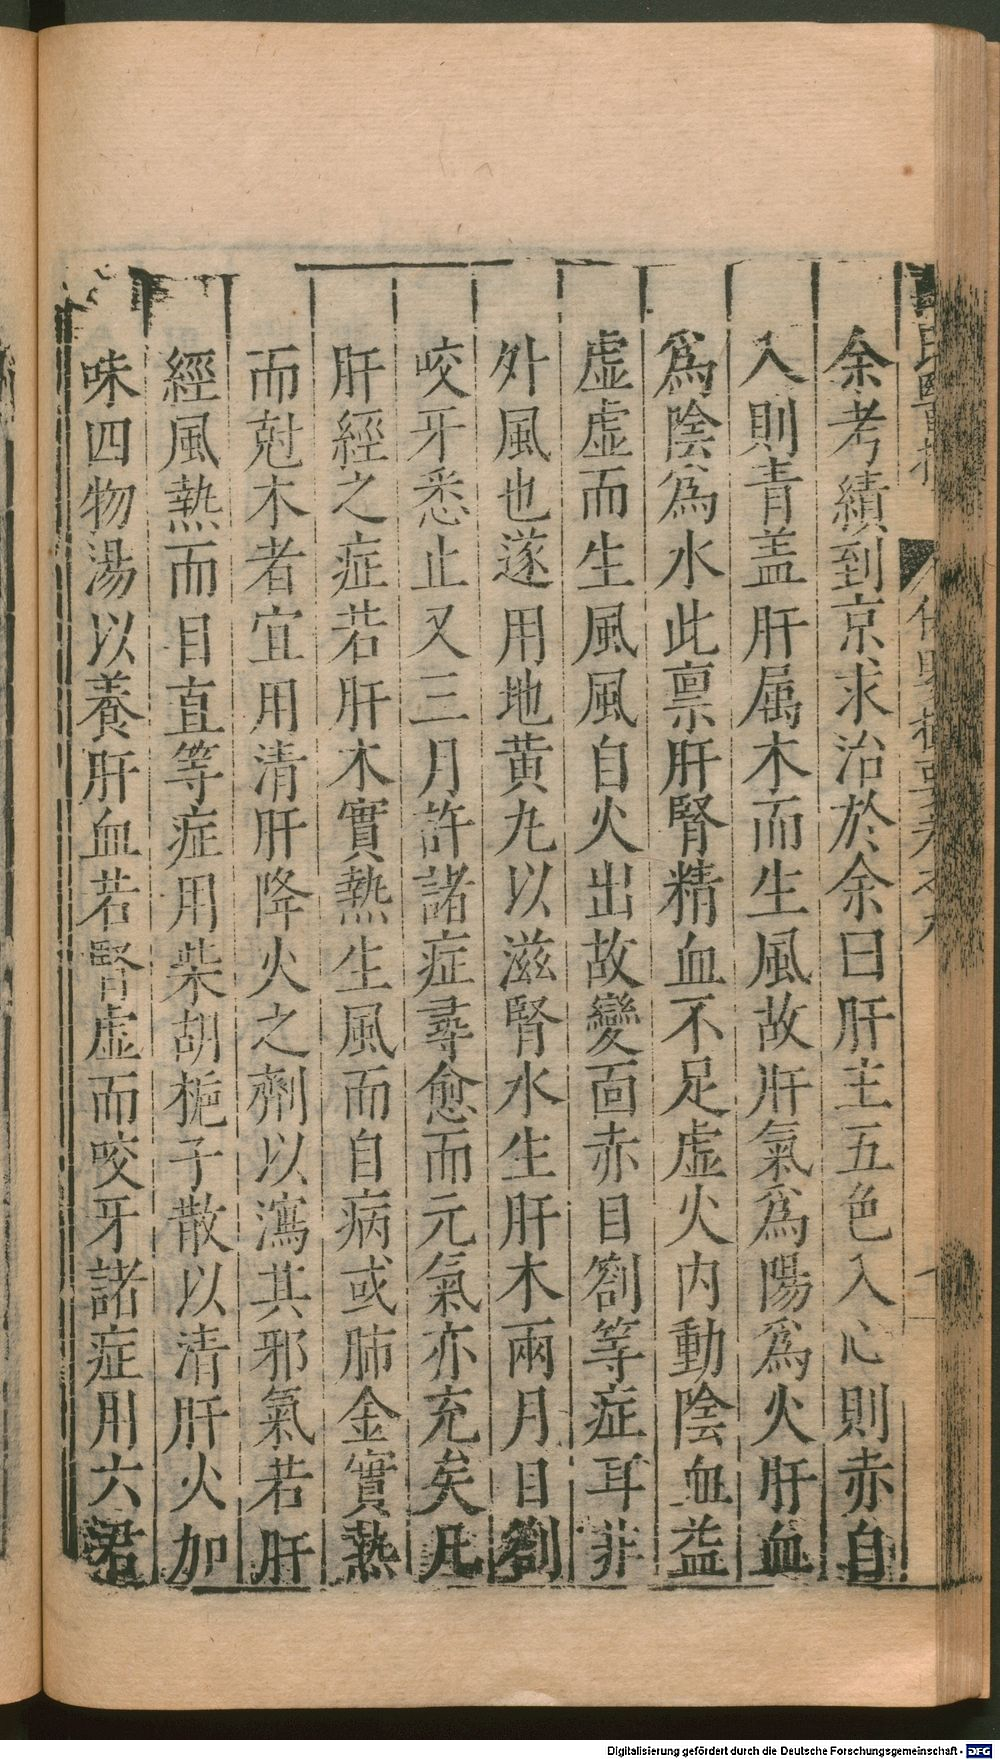 余考績到京求治於余曰肝主五色入心則赤自
入則青盖肝属木而生風故肝氣爲陽爲火肝血
爲陰爲水此禀肝腎精血不足虚火内動陰血益
虚虚而生風風自火出故變面赤目劄等症耳非
外風也遂用地黄九以滋腎水生肝木兩月目劄
咬牙悉止又三月許諸症尋愈而元氣亦充矣凡
肝經之症若肝木實熱生風而自病或肺金實熱
而尅木者宜用清肝降火之劑以瀉其邪氣若肝
經風熱而目直等症用柴胡梔子散以清肝火加
味四物湯以養肝血若腎虚而咬牙諸症用六君
Digitalisierung gefördert durch die Deutsche Forschungsgemeinschaft - DFG